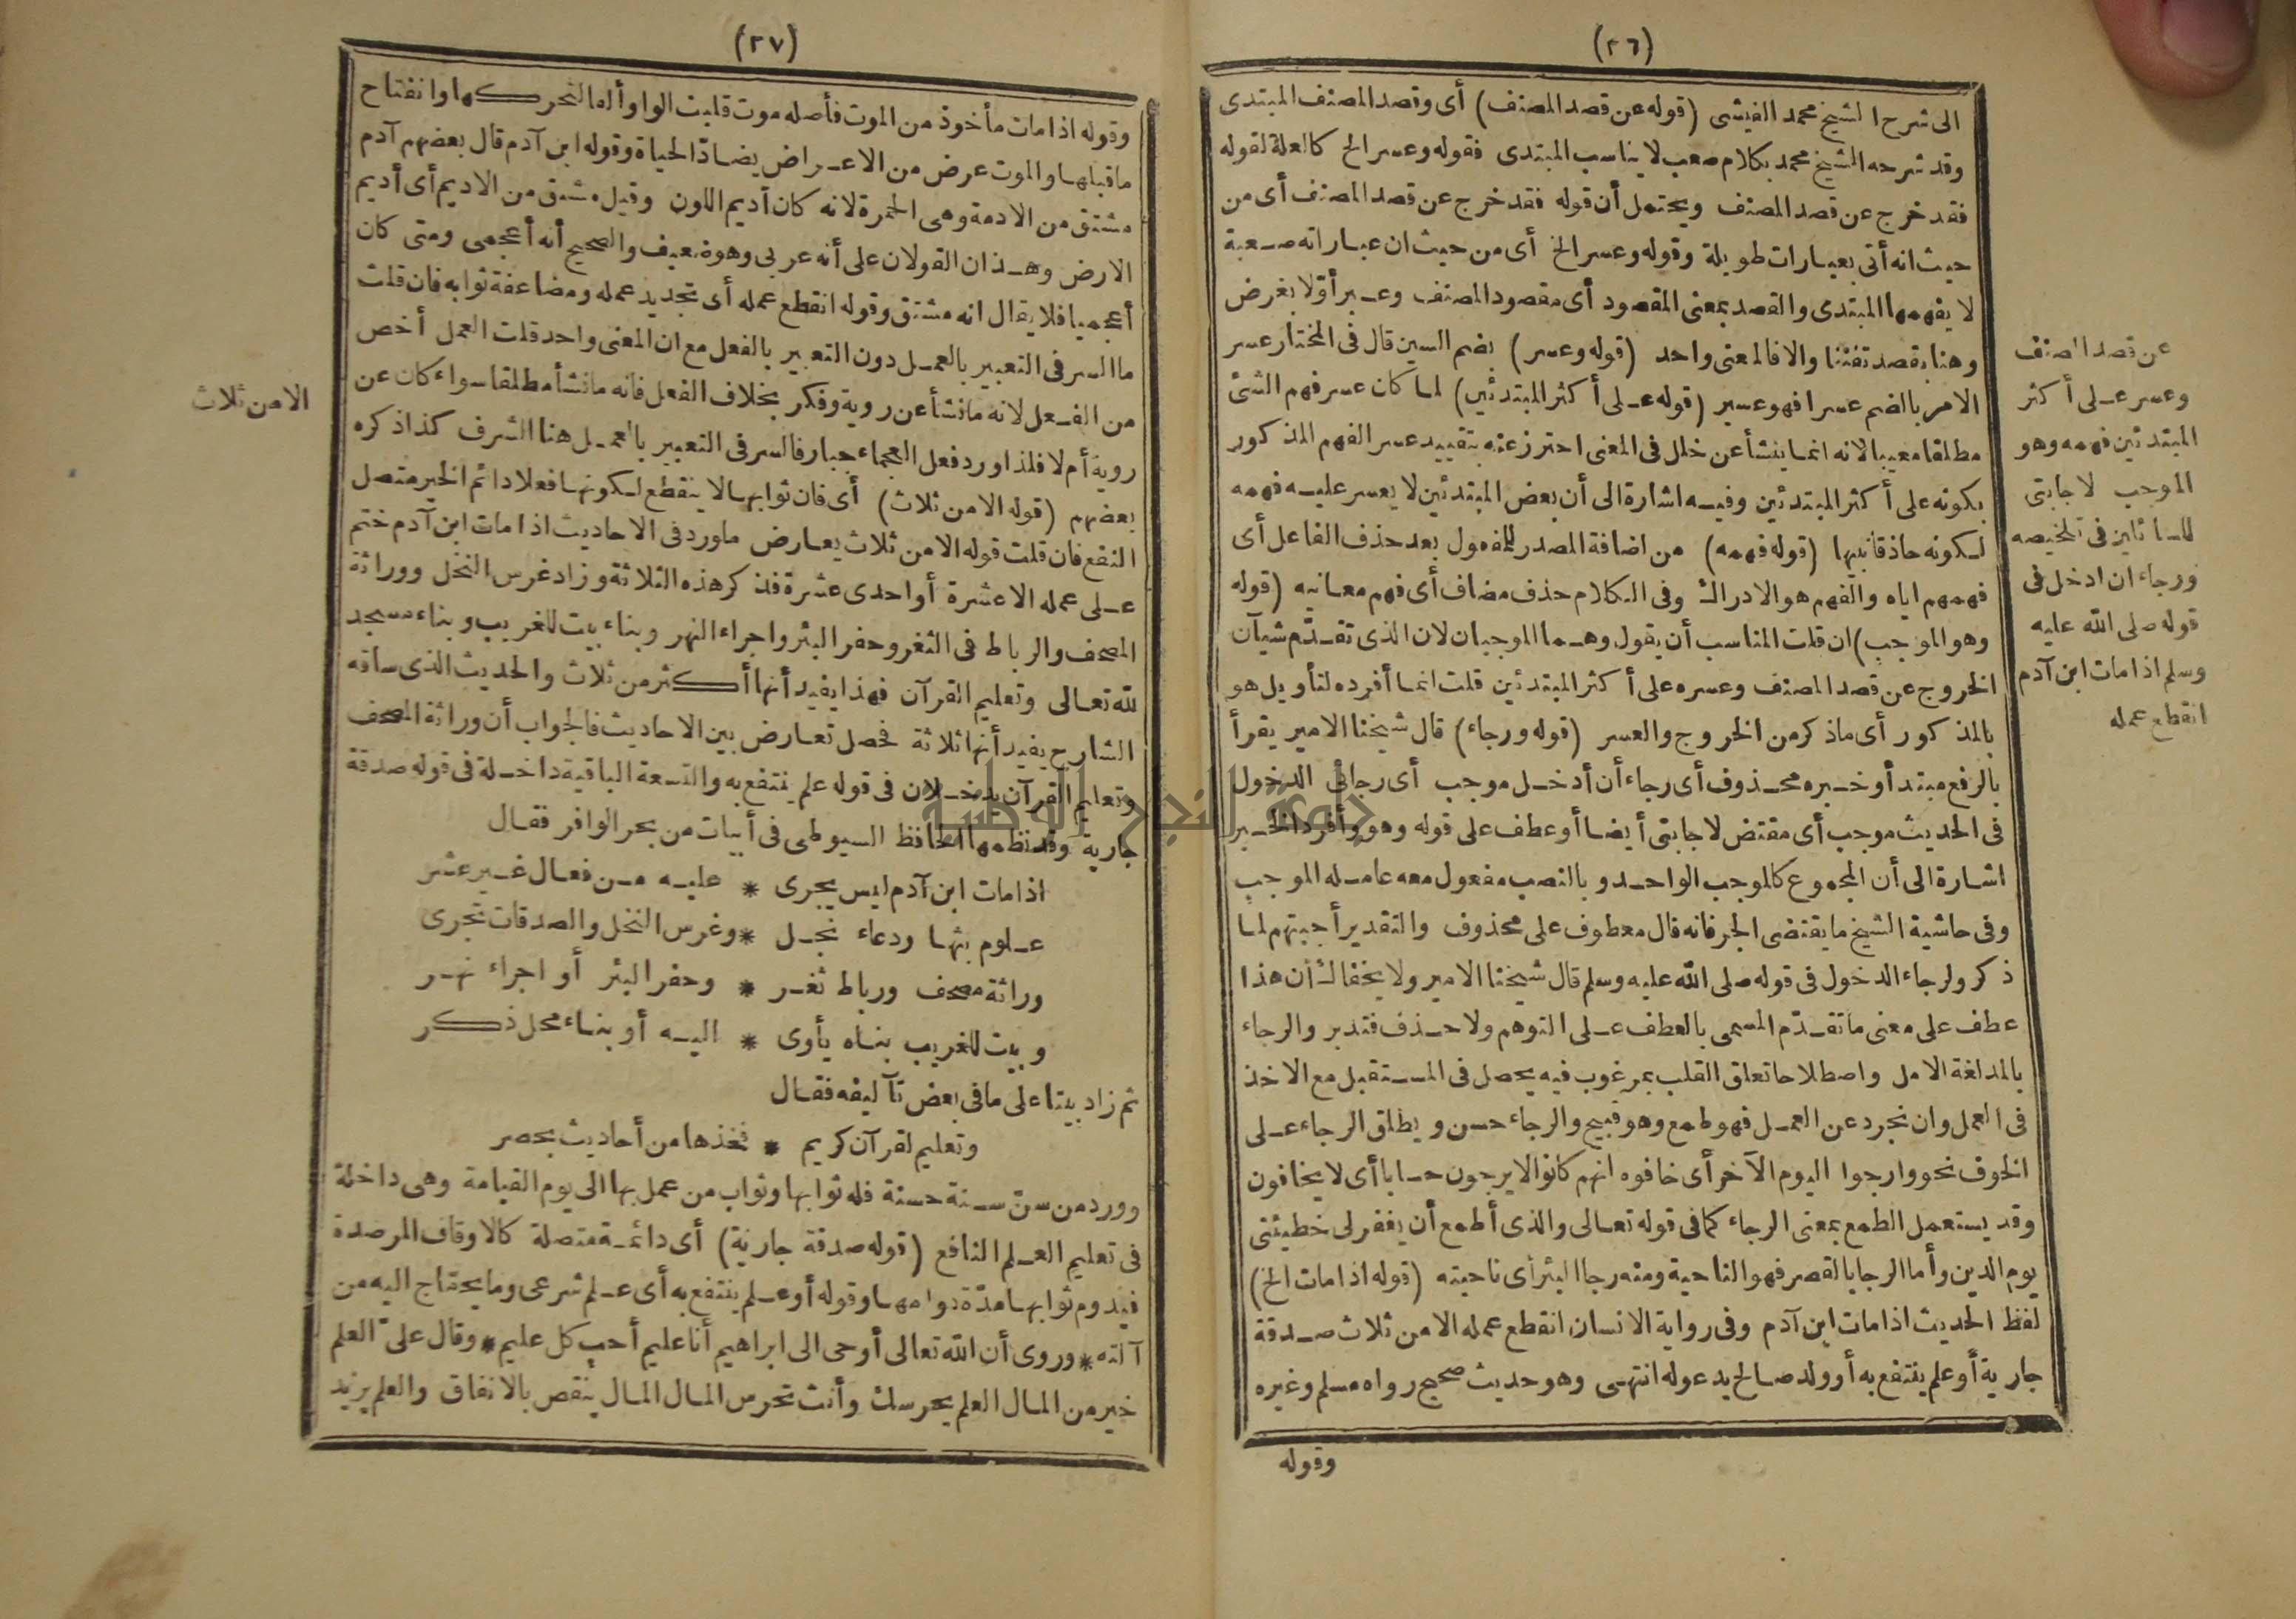 (٢٦)
الى شرح الشيخ محمد الفيشى (قوله عن قصد المصنف) أى وقصد المصنف المبتدى
وقد شرحه الشيخ محمد بكلام صعب لا يناسب المبتدى فقوله وعسر الخ كالعلة لقوله
فقد خرج عن قصد المصنف ويحتمل أن قوله فقد خرج عن قصد المصنف أى من
حيث انه أتى بعبارات طويلة وقوله وعسر الخ أى من حيث ان عباراته صعبة
لا يفهمها المبتدى والقصد بمعنى المقصود أى مقصود المصنف وعبر أولا بغرض
وهنا بقصد تفننا والا فالمعنى واحد (قوله وعسر) بضم السين قال فى المختار عسر
الامر بالضم عسرا فهو عسير (قوله على أكثر المبتدئين) لما كان عسر فهم الشئ
مطلقا معيبا لانه انما ينشأ عن خلل فى المعنى احترز عنه بتقييد عسر الفهم المذكور
بكونه على أكثر المبتدئين وفيه اشارة الى أن بعض المبتدئين لا يعسر عليه فهمه
لكونه حاذقا نبيها (قوله فهمه) من اضافة المصدر للمفعول بعد حذف الفاعل أى
فهمهم اياه والفهم هو الادراك وفى الكلام حذف مضاف أى فهم معانيه (قوله
وهو الموجب) ان قلت المناسب أن يقول وهما الموجبان لان الذى تقدّم شيآن
الخروج عن قصد المصنف وعسره على أكثر المبتدئين قلت انما أفرده لتأويل هو
بالمذكور أى ما ذكر من الخروج والعسر (قوله ورجاء) قال شيخنا الامير يقرأ
بالرفع مبتدأ وخبره محذوف أى رجاء أن أدخل موجب أى رجائى الدخول
فى الحديث موجب أى مقتض لاجابتى أيضا أو عطف على قوله وهو وأفرد الخبر
اشارة الى أن المجموع كالموجب الواحد وبالنصب مفعول معه عامله الموجب
وفى حاشية الشيخ ما يقتضى الجر فانه قال معطوف على محذوف والتقدير أجبتهم لما
ذكر ولرجاء الدخول فى قوله صلى الله عليه وسلم قال شيخنا الامير ولا يخفاك أن هذا
عطف على معنى ما تقدّم المسمى بالعطف على التوهم ولا حذف فتدبر والرجاء
بالمد لغة الامل واصطلاحا تعلق القلب بمرغوب فيه يحصل فى المستقبل مع الاخذ
فى العمل وان تجرد عن العمل فهو طمع وهو قبيح والرجاء حسن ويطلق الرجاء على
الخوف نحو وارجوا اليوم الآخر أى خافوه انهم كانوا لا يرجون حسابا أى لا يخافون
وقد يستعمل الطمع بمعنى الرجاء كما فى قوله تعالى والذى أطمع أن يغفر لى خطيئتى
يوم الدين وأما الرجا بالقصر فهو الناحية ومنه رجا البئر أى ناحيته (قوله اذا مات الخ)
لفظ الحديث اذا مات ابن آدم وفى رواية الانسان انقطع عمله الا من ثلاث صدقة
جارية أو علم ينتفع به أو ولد صالح يدعو له انتهى وهو حديث صحيح رواه مسلم وغيره
وقوله
عن قصد المصنف
وعسر على أكثر
المبتدئين فهمه وهو
الموجب لاجابتى
للسائلين فى تلخيصه
ورجاء ان ادخل فى
قوله صلى الله عليه
وسلم اذا مات ابن آدم
انقطع عمله
(٢٧)
وقوله اذا مات مأخوذ من الموت فأصله موت قلبت الواو ألفا لتحركها وانفتاح
ما قبلها والموت عرض من الاعراض يضادّ الحياة وقوله ابن آدم قال بعضهم آدم
مشتق من الادمة وهى الحمرة لانه كان أديم اللون وقيل مشتق من الاديم أى أديم
الارض وهذان القولان على أنه عربى وهو ضعيف والصحيح أنه أعجمى ومتى كان
أعجميا فلا يقال انه مشتق وقوله انقطع عمله أى تجديد عمله ومضاعفة ثوابه فان قلت
ما السر فى التعبير بالعمل دون التعبير بالفعل مع ان المعنى واحد قلت العمل أخص
من الفعل لانه ما نشأ عن روية وفكر بخلاف الفعل فانه ما نشأ مطلقا سواء كان عن
روية أم لا فلذا ورد فعل العجماء جبار فالسر فى التعبير بالعمل هنا الشرف كذا ذكره
بعضهم (قوله الا من ثلاث) أى فان ثوابها لا ينقطع لكونها فعلا دائم الخير متصل
النفع فان قلت قوله الا من ثلاث يعارض ما ورد فى الاحاديث اذا مات ابن آدم ختم
على عمله الا عشرة أو احدى عشرة فذكر هذه الثلاثة وزاد غرس النخل ووراثة
المصحف والرباط فى الثغر وحفر البئر واجراء النهر وبناء بيت للغريب وبناء مسجد
لله تعالى وتعليم القرآن فهذا يفيد أنها أكثر من ثلاث والحديث الذى ساقه
الشارح يفيد أنها ثلاثة فحصل تعارض بين الاحاديث فالجواب أن وراثة المصحف
وتعليم القرآن يدخلان فى قوله علم ينتفع به والتسعة الباقية داخلة فى قوله صدقة
جارية وقد نظمها الحافظ السيوطى فى أبيات من بحر الوافر فقال
اذا مات ابن آدم ليس يجرى * عليه من فعال غير عشر
علوم بثها ودعاء نجل * وغرس النخل والصدقات تجرى
وراثة مصحف ورباط ثغر * وحفر البئر أو اجراء نهر
وبيت للغريب بناه يأوى * اليه أو بناء محل ذكر
ثم زاد بيتا على ما فى بعض تآليفه فقال
وتعليم لقرآن كريم * فخذها من أحاديث بحصر
وورد من سنّ سنة حسنة فله ثوابها وثواب من عمل بها الى يوم القيامة وهى داخلة
فى تعليم العلم النافع (قوله صدقة جارية) أى دائمة متصلة كالاوقاف المرصدة
فيدوم ثوابها مدّة دوامها وقوله أو علم ينتفع به أى علم شرعى وما يحتاج اليه من
آلته * وروى أن الله تعالى أوحى الى ابراهيم أنا عليم أحب كل عليم * وقال علىّ العلم
خير من المال العلم يحرسك وأنت تحرس المال المال ينقص بالانفاق والعلم يزيد
الا من ثلاث